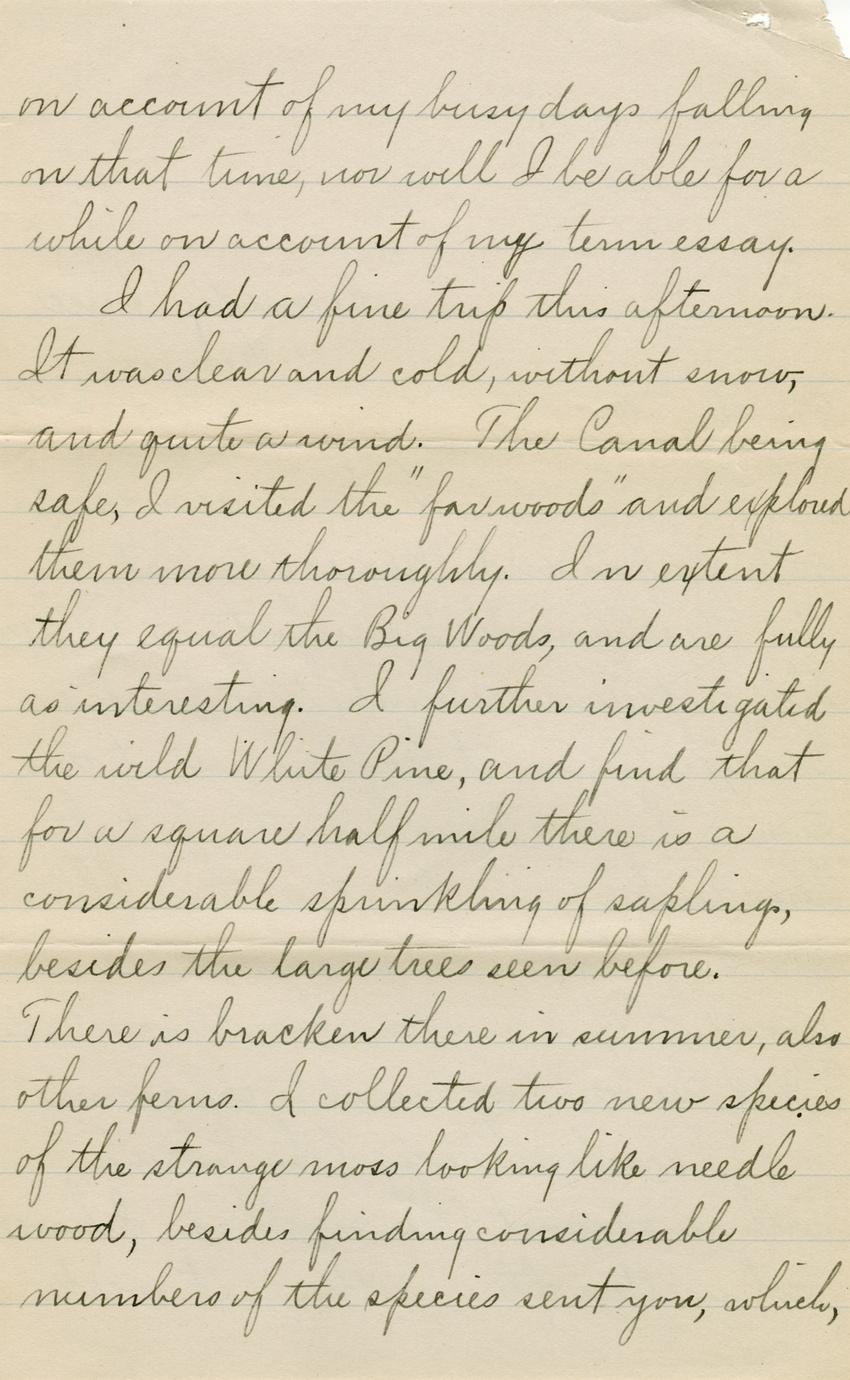 on account of my busy days falling
on that time, nor will I be able for a
while on account of my term essay.
I had a fine trip this afternoon.
It was clear and cold, without snow,
and quite a wind. The Canal being
safe, I visited the "far woods" and explored
them more thoroughly. In extent
they equal the Big Woods, and are fully
as interesting. I further investigated
the wild White Pine, and find that
for a square half mile there is a
considerable sprinkling of saplings,
besides the large trees seen before.
There is bracken there in summer, also
other ferns. I collected two new species
of the strange moss looking like needle
wood, besides finding considerable
numbers of the species sent you, which,